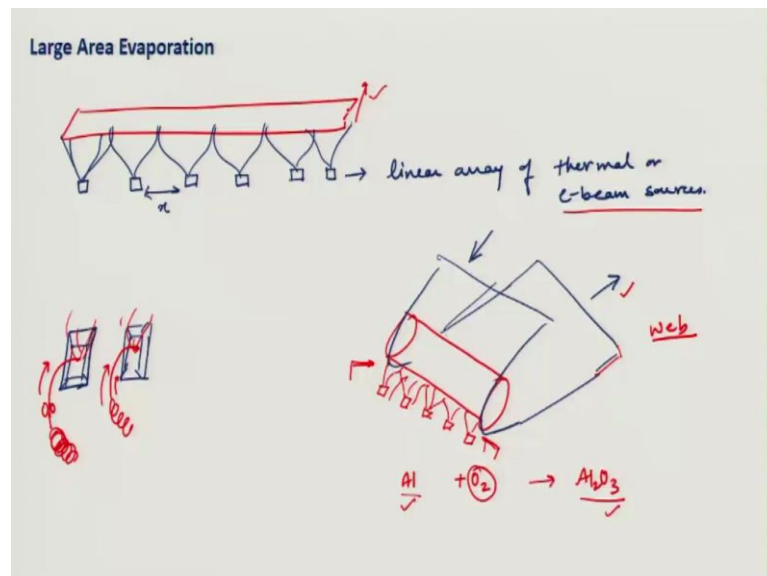 Large Area Evaporation
linear array of thermal or
e-beam sources.
x
web
Al + O2 → Al2O3